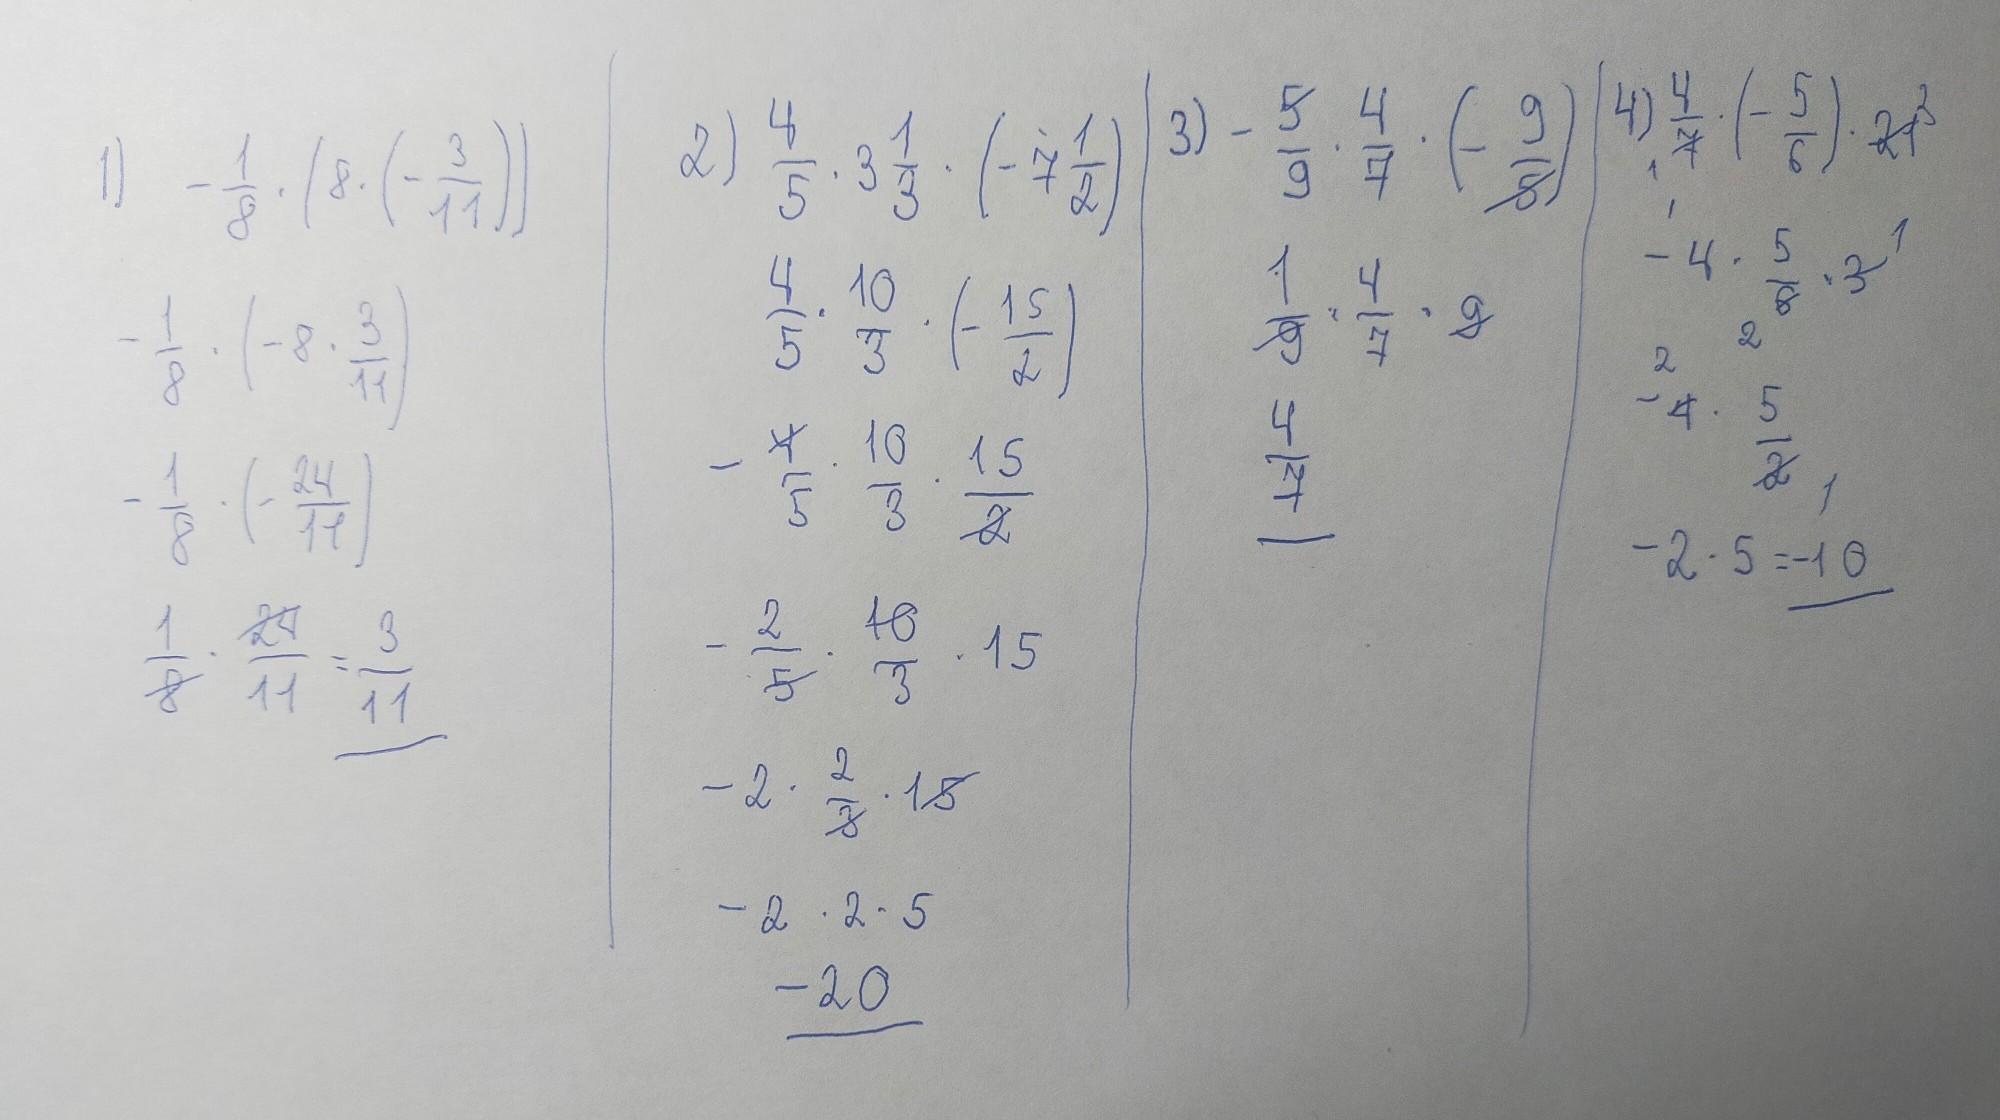 1) -1/8 · (8 · (-3/11))
-1/8 · (-8 · 3/11)
-1/8 · (-24/11)
1/8 · 24/11 = 3/11
2) 4/5 · 3 1/3 · (-7 1/2)
4/5 · 10/3 · (-15/2)
-4/5 · 10/3 · 15/2
-2/5 · 10/3 · 15
-2 · 2/3 · 15
-2 · 2 · 5
-20
3) -5/9 · 4/7 · (-9/5)
1/9 · 4/7 · 9
4/7
4) 4/7 · (-5/6) · 21 3
1
1
-4 · 5/6 · 3 1
2
2
-4 · 5/2
1
-2 · 5 = -10